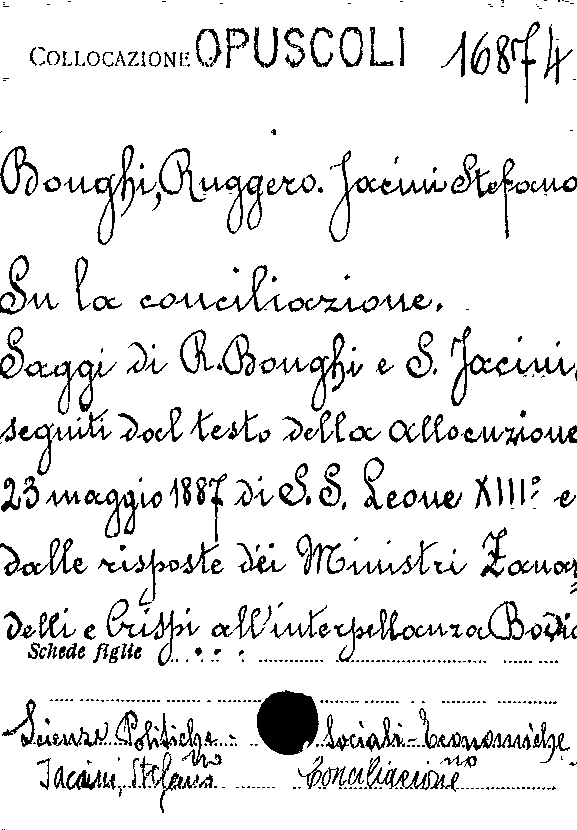 COLLOCAZIONE OPUSCOLI 16874
Bonghi, Ruggero. Jacini Stefano
Su la conciliazione.
Saggi di R. Bonghi e S. Jacini,
seguiti dal testo della allocuzione
23 maggio 1887 di S. S. Leone XIII° e
dalle risposte dei Ministri Zanar
delli e Crispi all'interpellanza Bovio
Schede figlie
Scienze Politiche - Sociali - Economiche
Jacini, Stefano Conciliazione